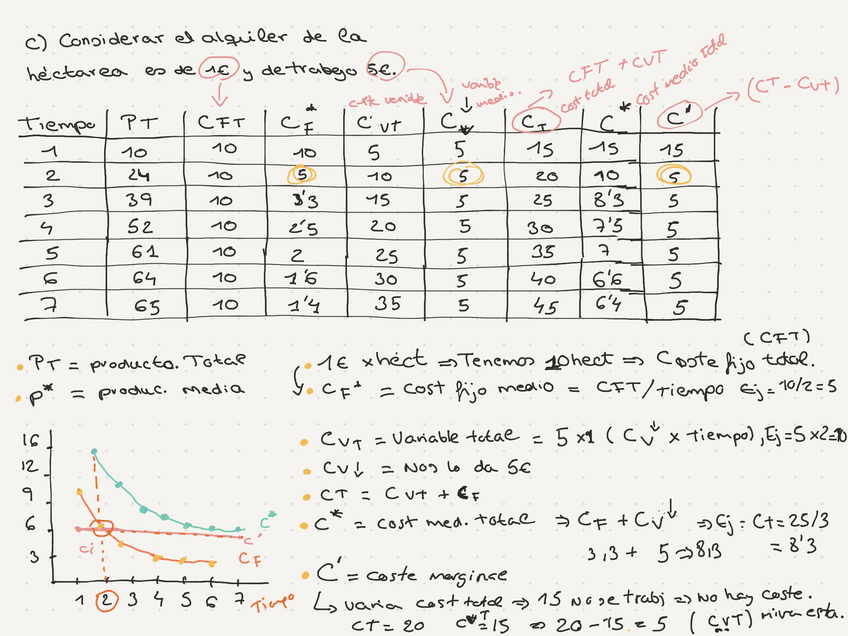 c) Considerar el alquiler de la
héctarea es de 1€ y de trabajo 5€.
variable medio.
CFT + CVT
cost total
cost medio total
(CT - Cvt)
coste variable
Tiempo PT CFT CF* CVT CV* CT C* C'
1 10 10 10 5 5 15 15 15
2 24 10 5 10 5 20 10 5
3 39 10 3'3 15 5 25 8'3 5
4 52 10 2'5 20 5 30 7'5 5
5 61 10 2 25 5 35 7 5
6 64 10 1'6 30 5 40 6'6 5
7 65 10 1'4 35 5 45 6'4 5
• PT = producto. Total
• p* = produc. media
(CFT)
• 1€ xhéct ⇒ Tenemos 10hect ⇒ Coste fijo total.
• CF* = cost fijo medio = CFT/Tiempo Ej = 10/2 = 5
• CVT = Variable total = 5 x1 (CV↓ x tiempo), Ej = 5x2=10
• CV↓ = Nos lo da 5€
• CT = CVT + CF
• C* = cost med. total ⇒ CF + CV↓ ⇒ Ej = Ct = 25/3
3,3 + 5 ⇒ 8,3 = 8'3
• C' = coste margina
↳ varia cost total ⇒ 15 No se trabj ⇒ No hay coste.
CT = 20 = 15 ⇒ 20 - 15 = 5 (CVT)
16
12
9
6
3
C*
C'
ci
CF
1 2 3 4 5 6 7 Tiempo